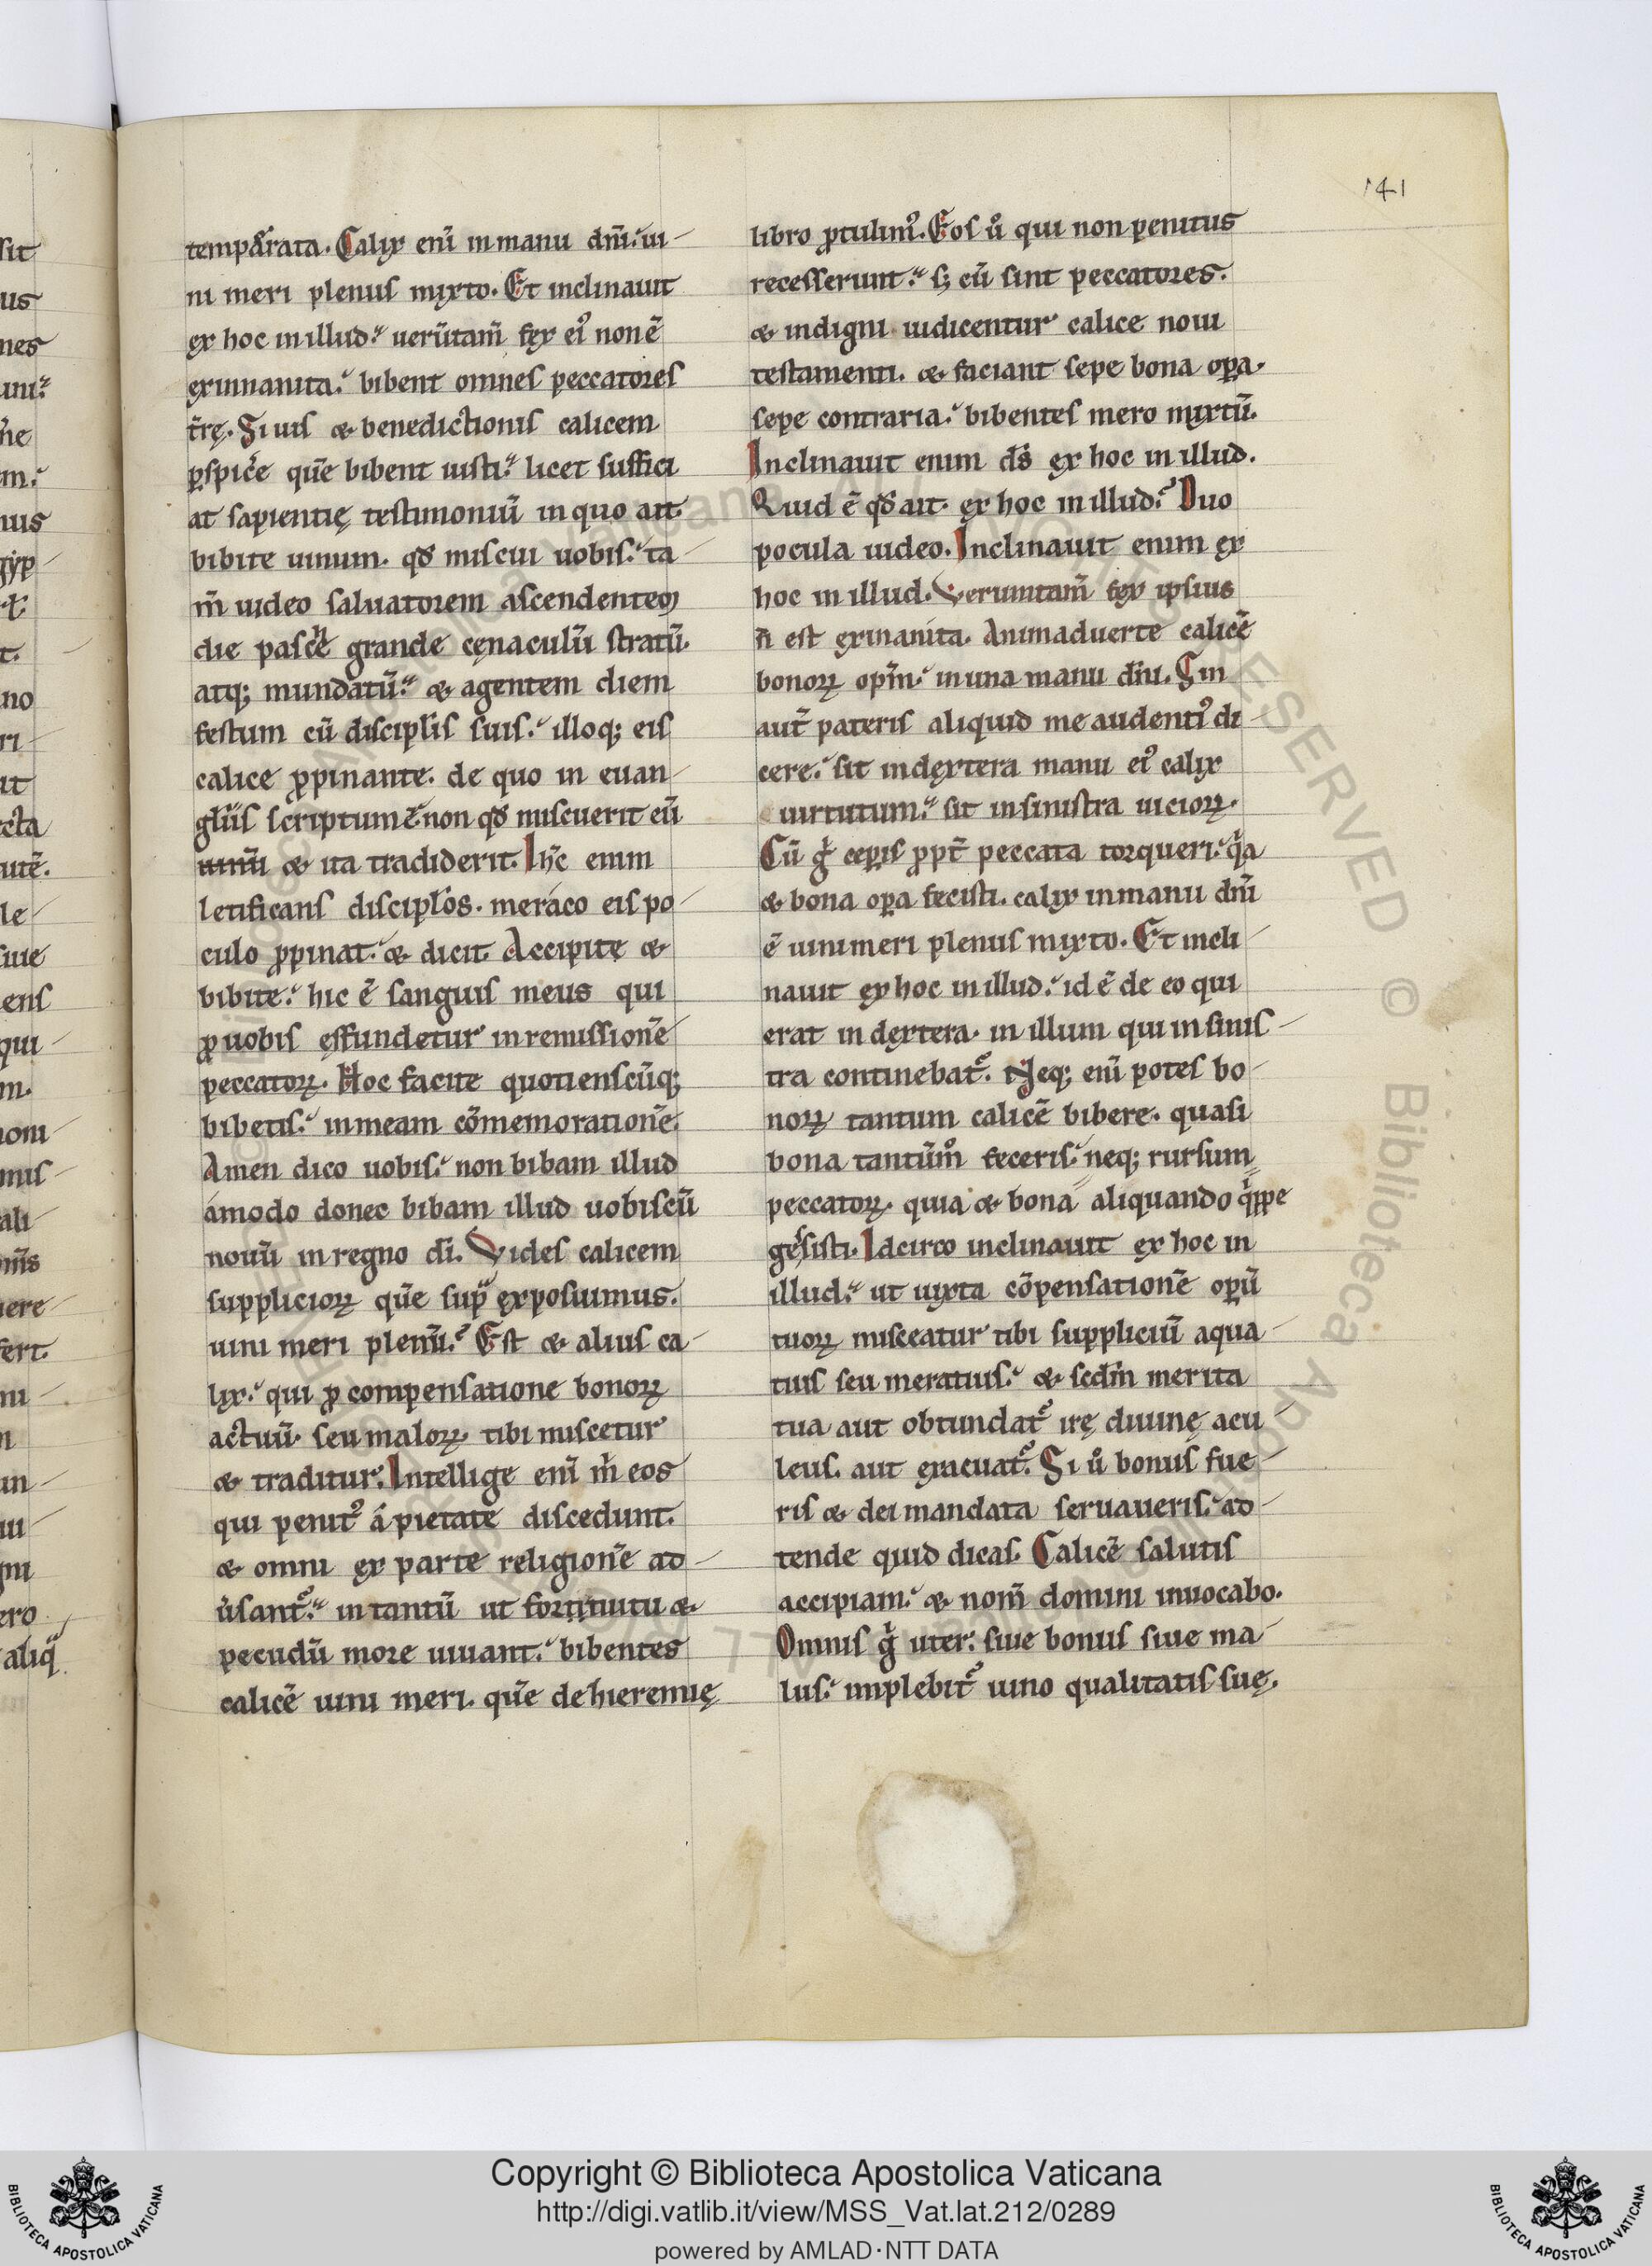 141
temparata. Calix enī in manu dnī. ui
ni meri plenus mixto. Et inclinauit
ex hoc in illud. uerūtam̄ fex ei᷒ non ē
exinnanita. bibent omnes peccatores
tr̄ę. Si uis & benedictionis calicem
ꝑspicͤe quē bibent iusti. licet suffici
at sapientię testimoniū in quo ait.
bibite uinum. qd̄ miscui uobis. ta
m̄ uideo saluatorem ascendentem
die paschē grande cęnaculū stratū.
atq; mundatū. & agentem diem
festum cū discipl̄is suis. illoq; eis
calice ꝓpinante. de quo in euan
gl̄iis scriptum ē non qd̄ miscuerit eū
uinū & ita tradiderit. Ih̄c enim
letificans discipl̄os. meraco eis po
culo ꝓpinat. & dicit. Accipite &
bibite. hic ē sanguis meus qui
ꝓ uobis effundetur in remissionē
peccatoꝝ. Hoc facite quotienscūq;
bibetis. in meam cōmemorationē.
Amen dico uobis. non bibam illud
ámodo donec bibam illud uobiscū
nouū in regno dī. Vides calicem
supplicioꝝ quē sup̄ exposuimus.
uini meri plenū. Est & alius ca
lix. qui ꝓ compensatione bonoꝝ
actuū. seu maloꝝ. tibi miscetur
& traditur. Intellige enī m̄ eos
qui penit᷒ á pietate discedunt.
& omni ex parte religionē ad
u̓sant᷑. in tantū ut fortituitu &
pecudū more uiuant. bibentes
calicē uini meri. quē de hieremię
libro ꝓtulim᷒. Eos uͦ qui non penitus
recesserunt. s; cū sint peccatores.
& indigni iudicentur calice noui
testamenti. & faciant sepe bona oꝑa.
sepe contraria. bibentes mero mixtū.
Inclinauit enim ds̄ ex hoc in illud.
Quid ē qd̄ ait. ex hoc in illud. Duo
pocula uideo. Inclinauit enim ex
hoc in illud. Veruntam̄ fex ipsius
n̄ est exinanita. Animaduerte calicē
bonoꝝ opm̄. in una manu dn̄i. Sin
aut̄ pateris aliquid me audenti᷒ di
cere. sit in dextera manu ei᷒ calix
uirtutum. sit in sinistra uicioꝝ.
Cū gͥ ceꝑis ꝓpt̄ peccata torqueri. qͥa
& bona oꝑa fecisti. calix in manu dnī
ē uini meri plenus mixto. Et incli
nauit ex hoc in illud. id ē de eo qui
erat in dextera. in illum qui in sinis
tra continebat᷑. Neq; enī potes bo
noꝝ tantum calicē bibere. quasi
bona tantūmͦ feceris. neq; rursum
peccatoꝝ. quia & bona aliquando qͥppe
gessisti. Idcirco inclinauit ex hoc in
illud. ut iuxta cōpensationē oꝑū
tuoꝝ misceatur tibi suppliciū aqua
tius seu meratius. & scdm̄ merita
tua aut obtundat᷑ irę diuinę acu
leus. aut exacuat᷑. Si uͦ bonus fue
ris & dei mandata seruaueris. ad
tende quid dicas. Calicē salutis
accipiam. & nom̄ domini inuocabo.
Omnis gͥ uter. siue bonus siue ma
lus. implebit᷑ uino qualitatis suę.
Copyright © Biblioteca Apostolica Vaticana
http://digi.vatlib.it/view/MSS_Vat.lat.212/0289
powered by AMLAD·NTT DATA
BIBLIOTECA APOSTOLICA VATICANA
BIBLIOTECA APOSTOLICA VATICANA